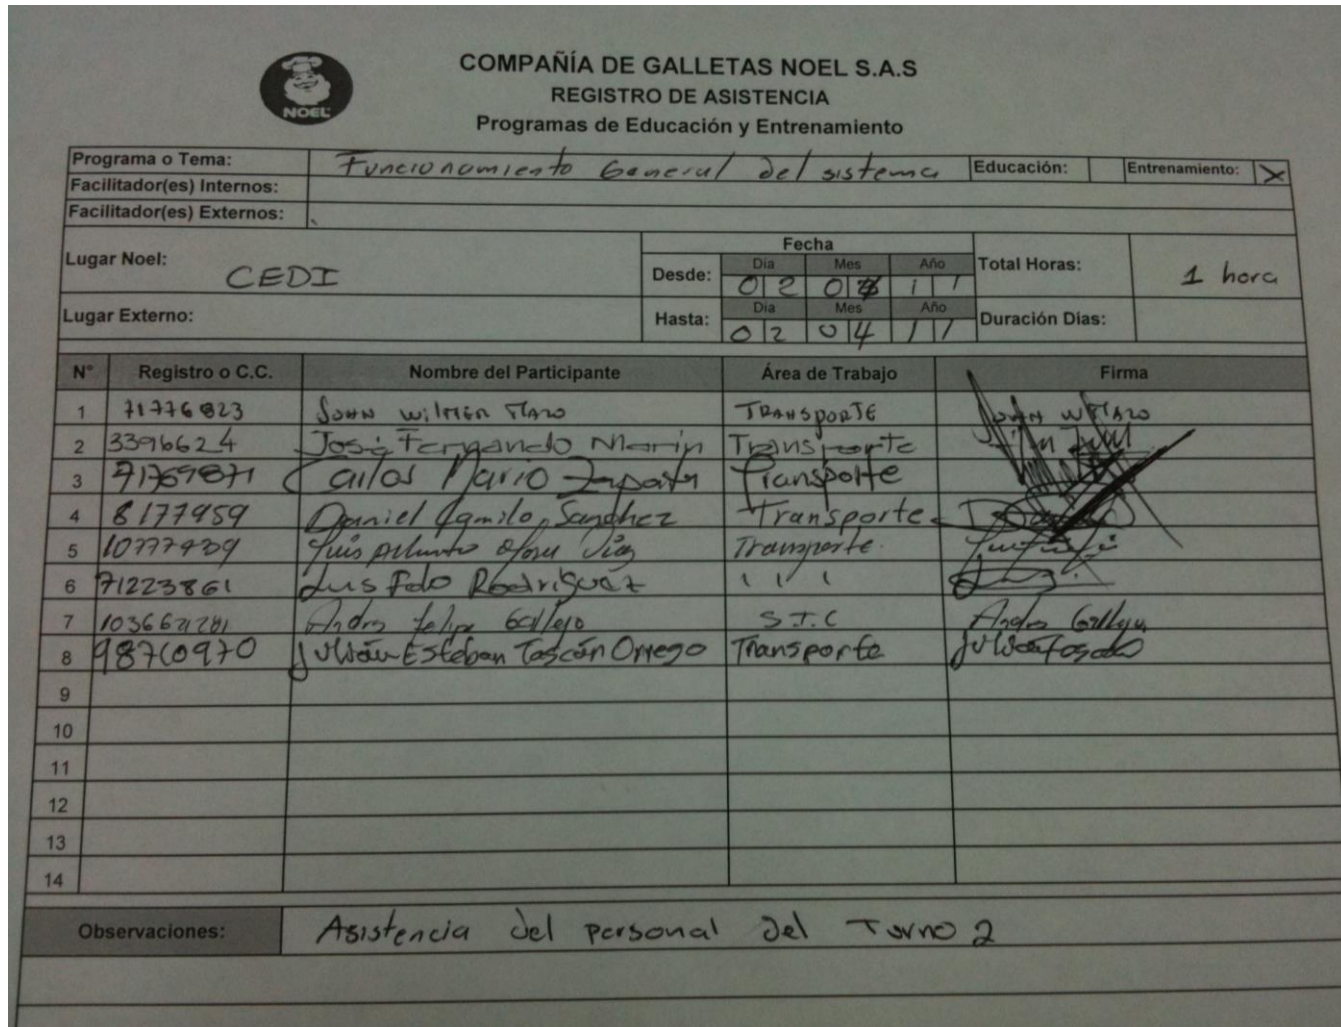 NOEL
COMPAÑÍA DE GALLETAS NOEL S.A.S
REGISTRO DE ASISTENCIA
Programas de Educación y Entrenamiento
Programa o Tema: Funcionamiento General del sistema Educación: Entrenamiento: X
Facilitador(es) Internos:
Facilitador(es) Externos:
Lugar Noel: CEDI
Fecha
Desde: Dia Mes Año
02 04 11
Total Horas: 1 hora
Lugar Externo:
Hasta: Dia Mes Año
02 04 11
Duración Dias:
N° Registro o C.C. Nombre del Participante Área de Trabajo Firma
1 71776823 John Wilmer Mazo TRANSPORTE John W Mazo
2 3396624 José Fernando Marin Transporte
3 71769871 Carlos Mario Zapata Transporte
4 8177959 Daniel Camilo Sanchez Transporte
5 Luis Transporte.
6 71223861 Luis Fdo Rodriguez ı ı ı
7 Andres felipe Gallego S.I.C Andres Gallego
8 98710970 Julián Esteban Tascón Orrego Transporte Julián Tascón
9
10
11
12
13
14
Observaciones: Asistencia del personal del Turno 2